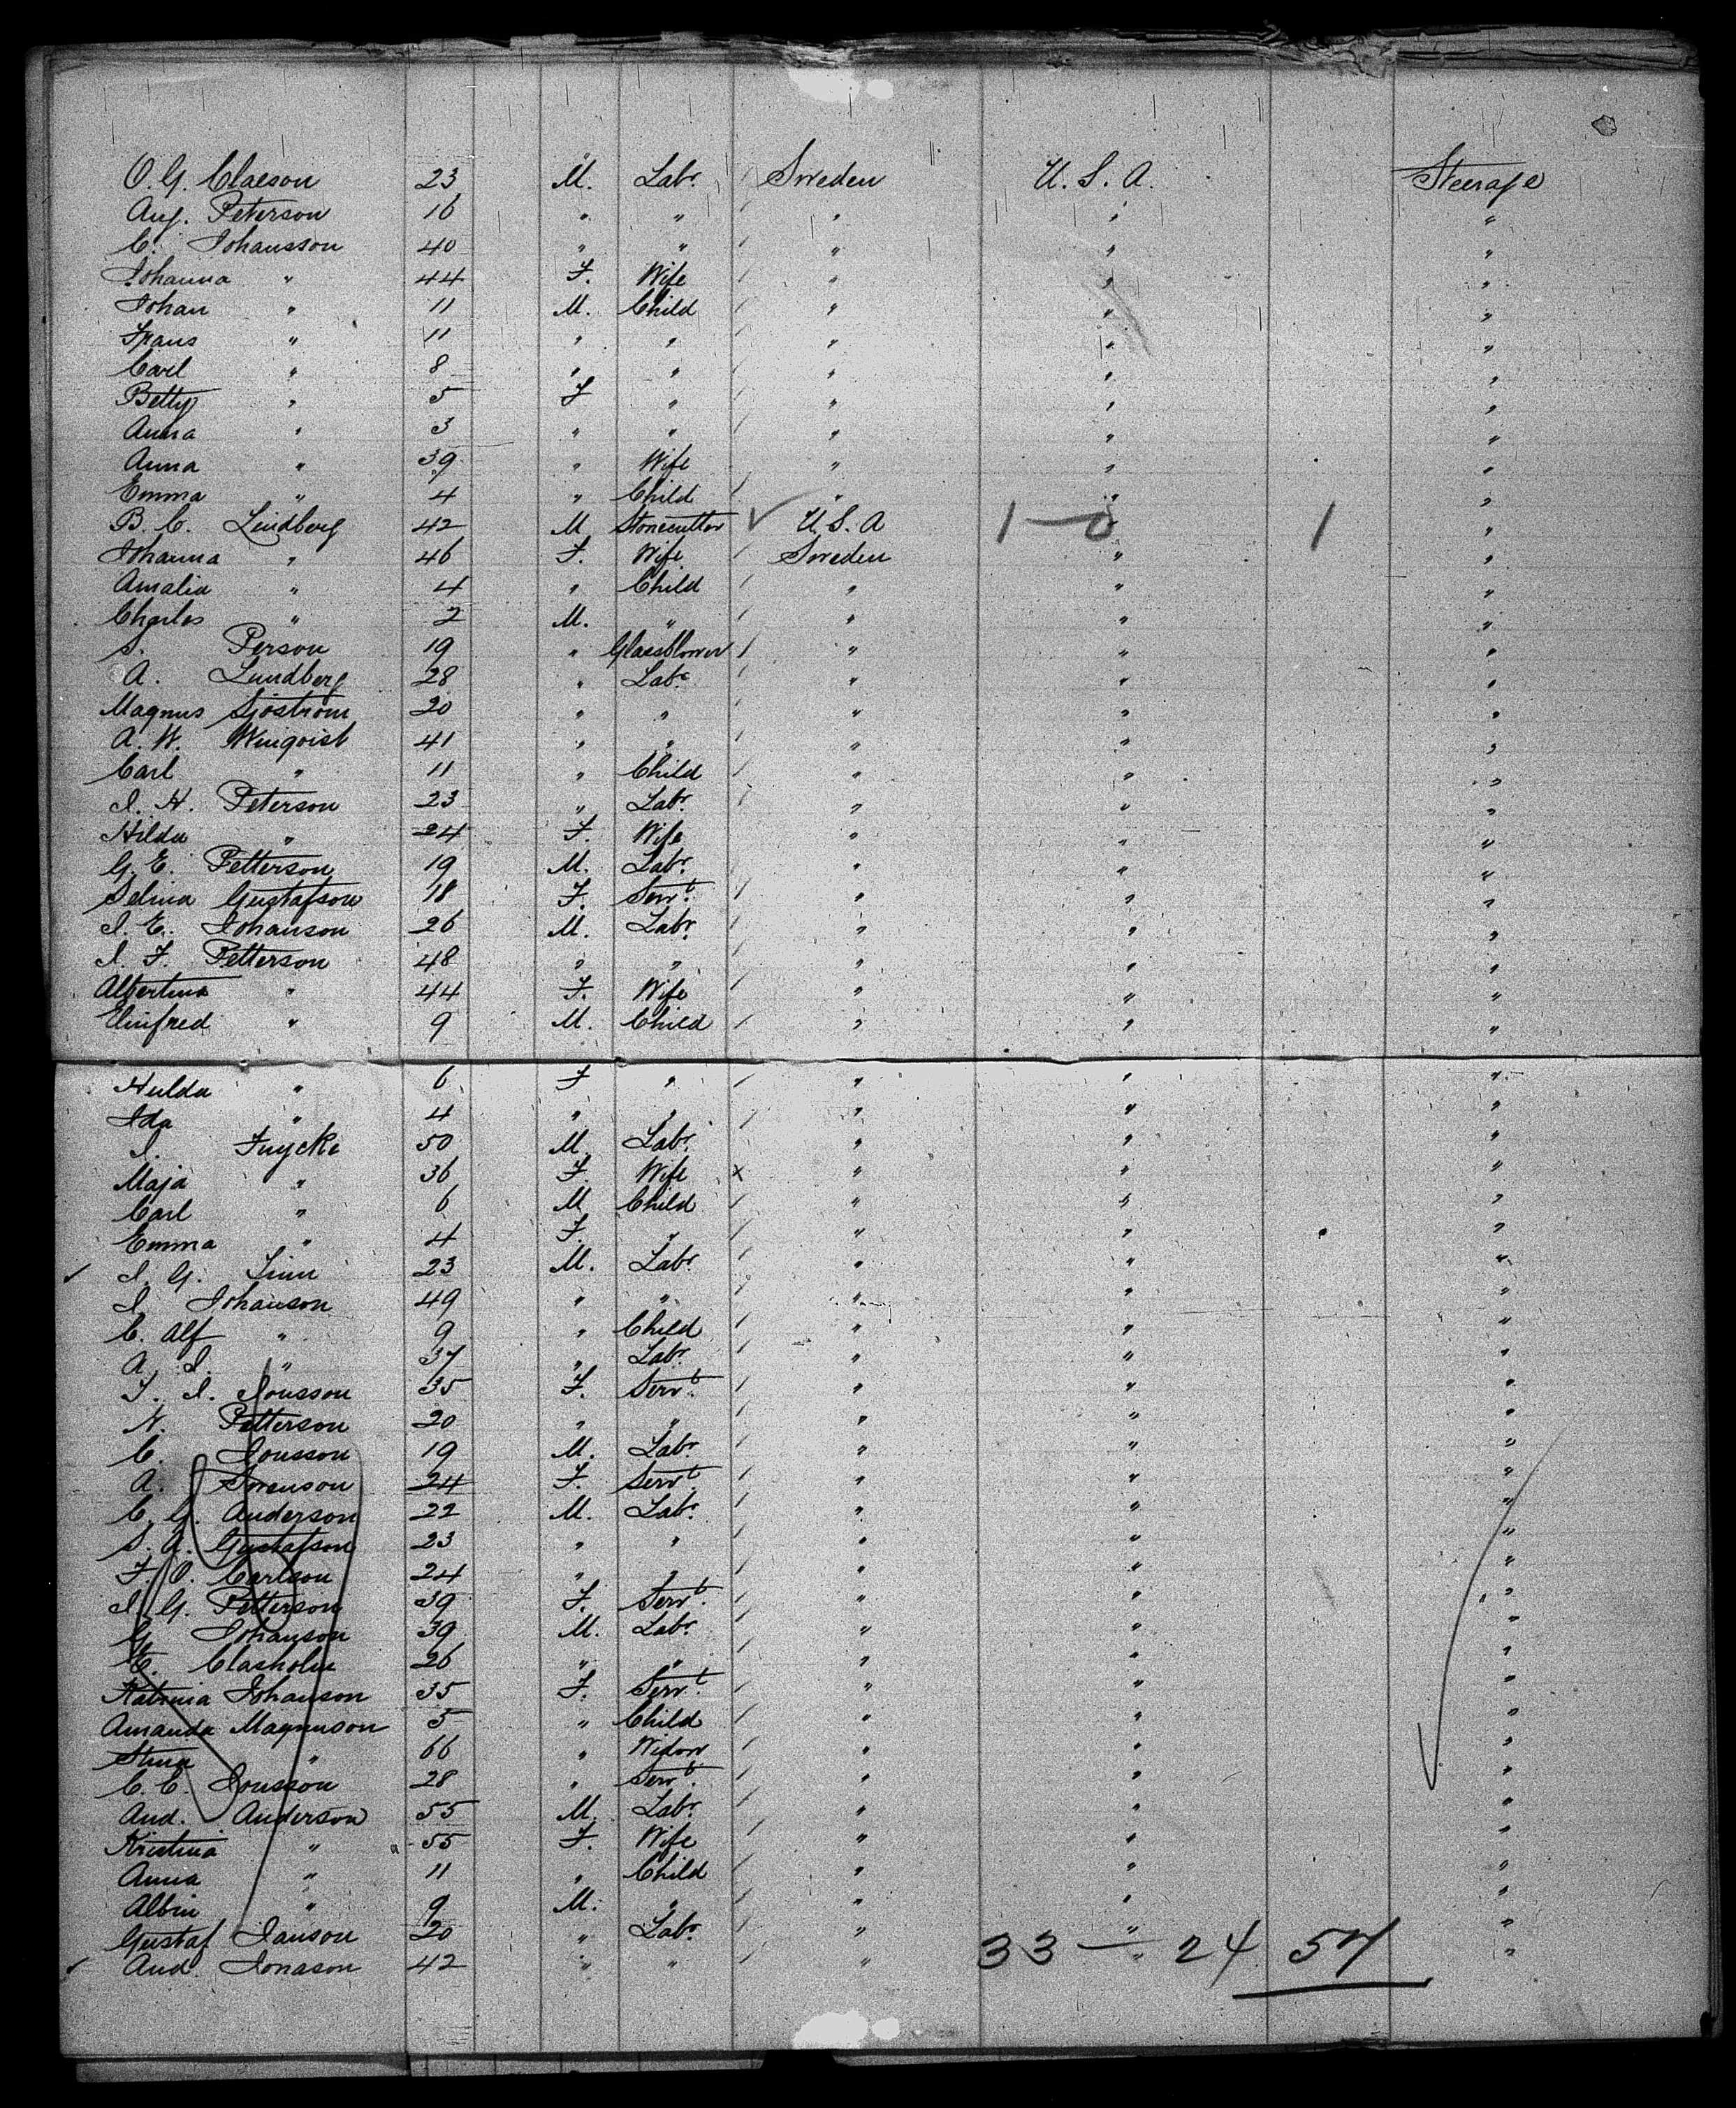 O. G. Claeson 23 M. Labr. Sweden U. S. A. Steerage
Aug. Peterson 16 " " " " "
C. Johansson 40 " " " " "
Johanna " 44 F. Wife " " "
Johan " 11 M. Child " " "
Frans " 11 " " " " "
Carl " 8 " " " " "
Betty " 5 F " " " "
Anna " 3 " " " " "
Anna " 39 " Wife " " "
Emma " 4 " Child " " "
B. C. Lindberg 42 M Stonecutter U. S. A 1-0 " 1 "
Johanna " 46 F. Wife Sweden " "
Amalia " 4 " Child " " "
Charles " 2 M. " " " "
S. Person 19 " Glassblower " " "
A. Lundberg 28 " Labr. " " "
Magnus Sjöström 20 " " " " "
A. W. Winqvist 41 " " " " "
Carl " 11 " Child " " "
I. H. Peterson 23 " Labr. " " "
Hilda " 24 F. Wife " " "
G. E. Petterson 19 M. Labr. " " "
Selma Gustafson 18 F. Servt. " " "
I. E. Johanson 26 M. Labr. " " "
I. F. Petterson 48 " " " " "
Albertina " 44 F. Wife " " "
" 9 M. Child " " "
Hulda " 6 F " " " "
Ida " 4 " " " " "
I. 50 M. Labr. " " "
Maja " 36 F. Wife x " " "
Carl " 6 M Child " " "
Emma " 4 F. " " " "
I. G. 23 M. Labr. " " "
I. Johanson 49 " " " " "
C. Alf " 9 " Child " " "
A. I. " 37 " Labr. " " "
F. I. Jonsson 35 F. Servt. " " "
N. Petterson 20 " " " " "
C. Jonsson 19 M. Labr " " "
A. Swenson 24 F. Servt " " "
C. G. Anderson 22 M. Labr. " " "
S. A. Gustafson 23 " " " " "
F. O. Carlson 24 " " " " "
I. G. Petterson 39 F. Servt. " " "
G. Johanson 39 M. Labr. " " "
E. Clasholm 26 " " " " "
Katrina Johanson 35 F. Servt. " " "
Amanda Magnuson 5 " Child " " "
Stina " 66 " Widow " " "
C. E. Jonsson 28 " Servt. " " "
And. Anderson 55 M. Labr. " " "
Kristina " 55 F. Wife " " "
Anna " 11 " Child " " "
Albin " 9 M. " " " "
Gustaf Janson 20 " Labr. " " "
And. Jonason 42 " " " " "
33 — 24 57